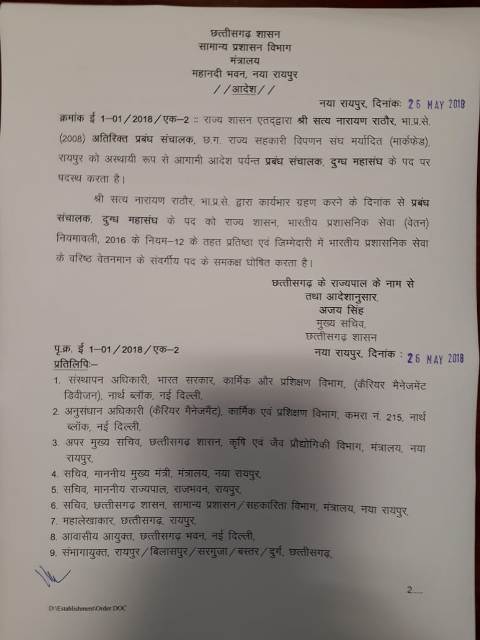 छत्तीसगढ़ शासन
सामान्य प्रशासन विभाग
मंत्रालय
महानदी भवन, नया रायपुर
//आदेश//
नया रायपुर, दिनांकः 26 MAY 2018
क्रमांक ई 1–01/2018/एक–2 :: राज्य शासन एतद्द्वारा श्री सत्य नारायण राठौर, भा.प्र.से.
(2008) अतिरिक्त प्रबंध संचालक, छ.ग. राज्य सहकारी विपणन संघ मर्यादित (मार्कफेड),
रायपुर को अस्थायी रूप से आगामी आदेश पर्यन्त प्रबंध संचालक, दुग्ध महासंघ के पद पर
पदस्थ करता है।
श्री सत्य नारायण राठौर, भा.प्र.से. द्वारा कार्यभार ग्रहण करने के दिनांक से प्रबंध
संचालक, दुग्ध महासंघ के पद को राज्य शासन, भारतीय प्रशासनिक सेवा (वेतन)
नियमावली, 2016 के नियम–12 के तहत प्रतिष्ठा एवं जिम्मेदारी में भारतीय प्रशासनिक सेवा
के वरिष्ठ वेतनमान के संवर्गीय पद के समकक्ष घोषित करता है।
छत्तीसगढ़ के राज्यपाल के नाम से
तथा आदेशानुसार,
अजय सिंह
मुख्य सचिव,
छत्तीसगढ़ शासन
पृ.क्र. ई 1–01/2018/एक–2 नया रायपुर, दिनांक : 26 MAY 2018
प्रतिलिपिः–
1. संस्थापन अधिकारी, भारत सरकार, कार्मिक और प्रशिक्षण विभाग, (कैरियर मैनेजमेंट
डिवीजन), नार्थ ब्लॉक, नई दिल्ली,
2. अनुसंधान अधिकारी (कैरियर मैनेजमेंट), कार्मिक एवं प्रशिक्षण विभाग, कमरा नं. 215, नार्थ
ब्लॉक, नई दिल्ली,
3. अपर मुख्य सचिव, छत्तीसगढ़ शासन, कृषि एवं जैव प्रौद्योगिकी विभाग, मंत्रालय, नया
रायपुर,
4. सचिव, माननीय मुख्य मंत्री, मंत्रालय, नया रायपुर,
5. सचिव, माननीय राज्यपाल, राजभवन, रायपुर,
6. सचिव, छत्तीसगढ़ शासन, सामान्य प्रशासन/सहकारिता विभाग, मंत्रालय, नया रायपुर,
7. महालेखाकार, छत्तीसगढ़, रायपुर,
8. आवासीय आयुक्त, छत्तीसगढ़ भवन, नई दिल्ली,
9. संभागायुक्त, रायपुर/बिलासपुर/सरगुजा/बस्तर/दुर्ग, छत्तीसगढ़,
2.....
D:\Establishment\Order.DOC